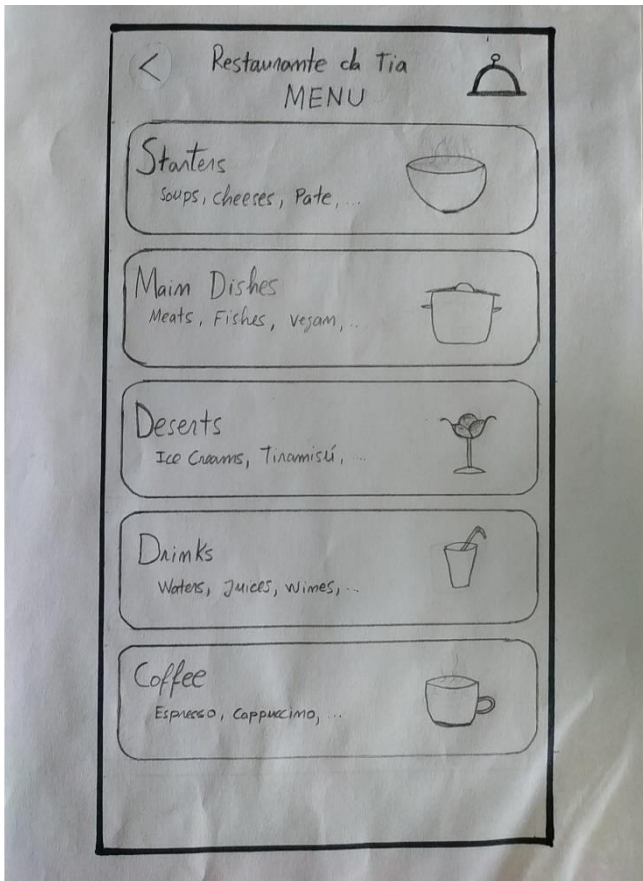 Restaurante da Tia
MENU
Starters
Soups, cheeses, Pate, ...
Main Dishes
Meats, Fishes, Vegan, ..
Deserts
Ice Creams, Tiramisú, ...
Drinks
Waters, Juices, Wines, ..
Coffee
Espresso, Cappuccino, ...